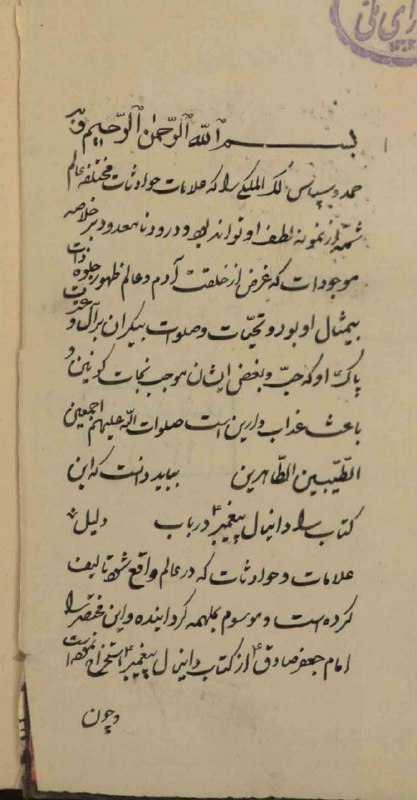 رای ملی
بسم الله الرحمن الرحیم
حمد و سپاس ملک الملکی را که علامات حوادثات مختلفه عالم
شمهٔ از نمونه لطف او تواند بود و درود نامعدود بر خلاصه
موجودات که غرض از خلقت آدم و عالم ظهور جلوه ذات
بیمثال او بود و تحیّات و صلوات بیکران بر آل و عترت
پاک او که حبّ و بغض ایشان موجب نجات کونین و
باعث عذاب دارین است صلوات الله علیهم اجمعین
الطّیبین الطّاهرین بباید دانست که این
کتاب را دانیال پیغمبر ع در باب دلیل
علامات و حوادثات که در عالم واقع شود تالیف
کرده است و موسوم بملهمه گردانیده و این مختصر را
امام جعفر صادق ع از کتاب دانیال پیغمبر ع استخراج نموده است
و چون